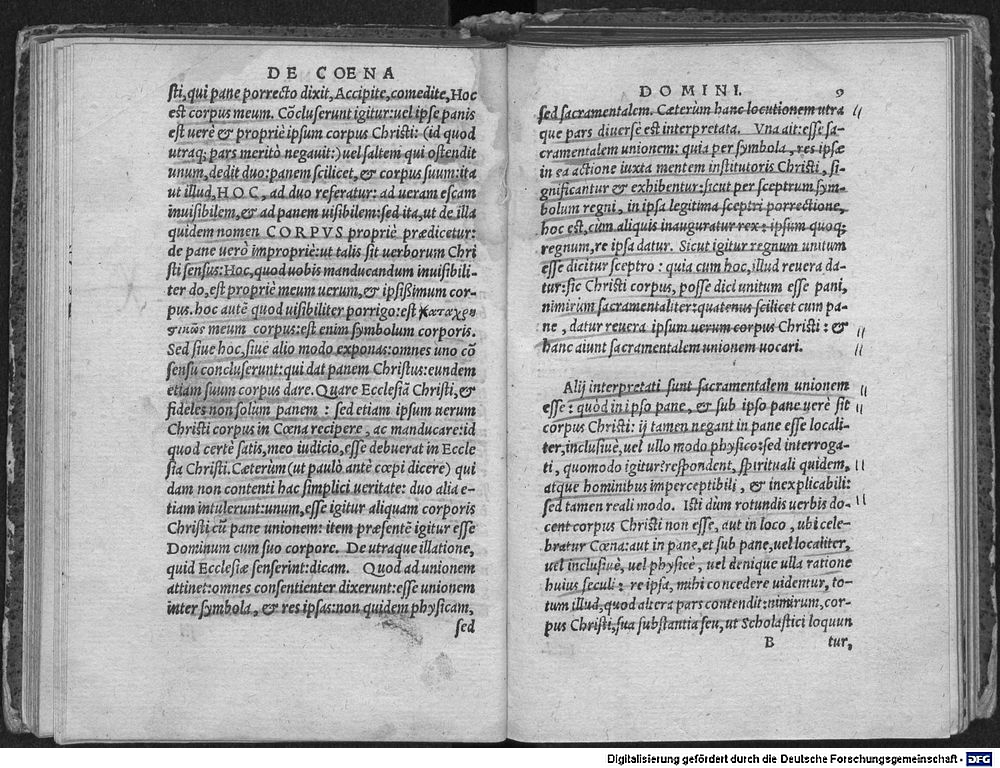 DE COENA
sti, qui pane porrecto dixit, Accipite, comedite, Hoc
est corpus meum. Cōcluserunt igitur: uel ipse panis
est uerè & propriè ipsum corpus Christi: (id quod
utraq; pars meritò negauit:) uel saltem qui ostendit
unum, dedit duo: panem scilicet, & corpus suum: ita
ut illud, HOC, ad duo referatur: ad ueram escam
inuisibilem, & ad panem uisibilem: sed ita, ut de illa
quidem nomen CORPVS propriè prædicetur:
de pane uerò impropriè: ut talis sit uerborum Chri
sti sensus: Hoc, quod uobis manducandum inuisibili-
ter do, est propriè meum uerum, & ipsißimum cor-
pus. hoc autē quod uisibiliter porrigo: est καταχρη
στικῶς meum corpus: est enim symbolum corporis.
Sed siue hoc, siue alio modo exponas: omnes uno cō
sensu concluserunt: qui dat panem Christus: eundem
etiam suum corpus dare. Quare Ecclesiā Christi, &
fideles non solùm panem : sed etiam ipsum uerum
Christi corpus in Cœna recipere, ac manducare: id
quod certè satis, meo iudicio, esse debuerat in Eccle
sia Christi. Cæterùm (ut paulò antè cœpi dicere) qui
dam non contenti hac simplici ueritate: duo alia e-
tiam intulerunt: unum, esse igitur aliquam corporis
Christi cū pane unionem: item præsentē igitur esse
Dominum cum suo corpore. De utraque illatione,
quid Ecclesiæ senserint: dicam. Quod ad unionem
attinet: omnes consentienter dixerunt: esse unionem
inter symbola, & res ipsas: non quidem physicam,
sed
DOMINI. 9
sed sacramentalem. Cæterùm hanc locutionem utra
que pars diuersè est interpretata. Vna ait: esse sa-
cramentalem unionem: quia per symbola, res ipsæ
in ea actione iuxta mentem institutoris Christi, si-
gnificantur & exhibentur: sicut per sceptrum sym-
bolum regni, in ipsa legitima sceptri porrectione,
hoc est, cùm aliquis inauguratur rex: ipsum quoq;
regnum, re ipsa datur. Sicut igitur regnum unitum
esse dicitur sceptro: quia cum hoc, illud reuera da-
tur: sic Christi corpus, posse dici unitum esse pani,
nimirùm sacramentaliter: quatenus scilicet cum pa-
ne, datur reuera ipsum uerum corpus Christi: &
hanc aiunt sacramentalem unionem uocari.
Alij interpretati sunt sacramentalem unionem
esse: quòd in ipso pane, & sub ipso pane uerè sit
corpus Christi: ij tamen negant in pane esse locali-
ter, inclusiuè, uel ullo modo physico: sed interroga-
ti, quomodo igitur? respondent, spirituali quidem,
atque hominibus imperceptibili, & inexplicabili:
sed tamen reali modo. Isti dùm rotundis uerbis do-
cent corpus Christi non esse, aut in loco, ubi cele-
bratur Cœna: aut in pane, et sub pane, uel localiter,
uel inclusiuè, uel physicè, uel denique ulla ratione
huius seculi: re ipsa, mihi concedere uidentur, to-
tum illud, quod altera pars contendit: nimirum, cor-
pus Christi, sua substantia seu, ut Scholastici loquun
B tur,
Digitalisierung gefördert durch die Deutsche Forschungsgemeinschaft - DFG